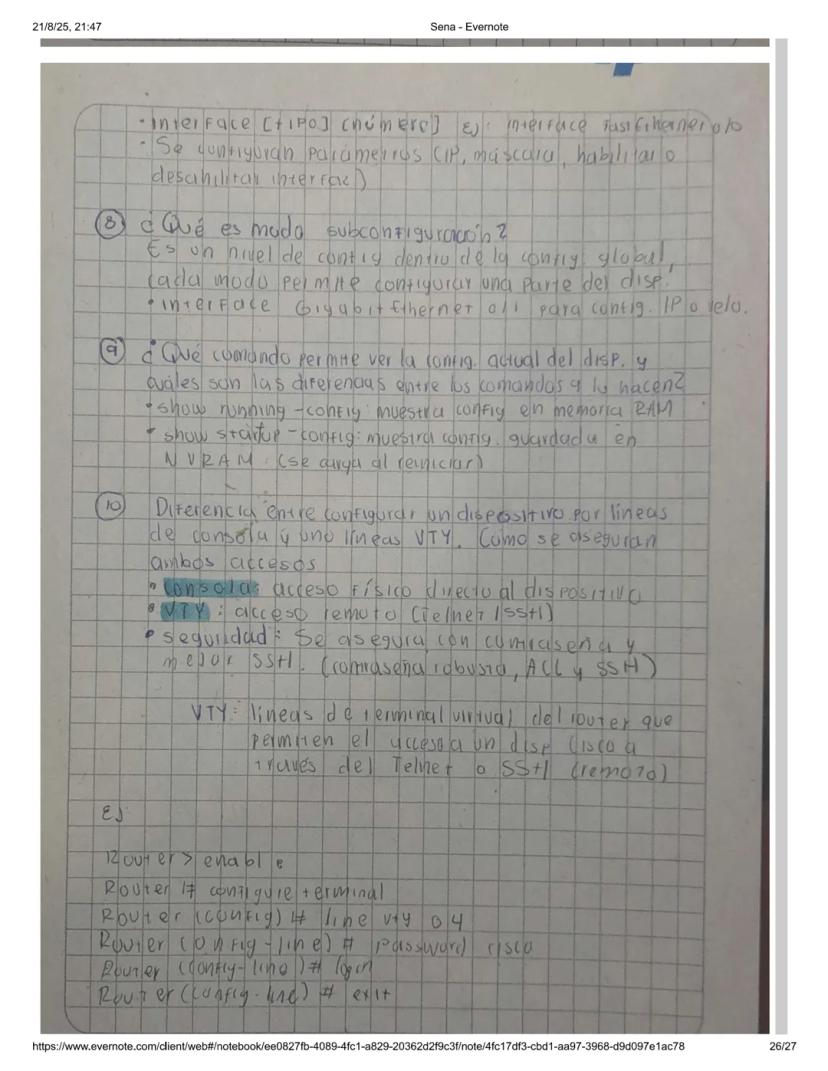 21/8/25, 21:47
Sena - Evernote
• Interface [tipo] [número] Ej: interface fastEthernet 0/0
• Se configuran parámetros (IP, máscara, habilitar o
deshabilitar interfaz)
8 ¿Qué es modo subconfiguración?
Es un nivel de config dentro de la config. global,
cada modo permite configurar una parte del disp.
• interface GigabitEthernet 0/1 para config. IP o velo.
9 ¿Qué comando permite ver la config. actual del disp. y
cuáles son las diferencias entre los comandos q lo hacen?
• show running-config: muestra config en memoria RAM
• show startup-config: muestra config. guardada en
NVRAM. (se carga al reiniciar)
10 Diferencia entre configurar un dispositivo por líneas
de consola y uno líneas VTY. Cómo se aseguran
ambos accesos
• Consola: acceso físico directo al dispositivo
• VTY: acceso remoto (Telnet / SSH)
• seguridad: Se asegura con contraseña y
mejor SSH. (contraseña robusta, ACL y SSH)
VTY: líneas de terminal virtual del router que
permiten el acceso a un disp cisco a
través del Telnet o SSH (remoto)
EJ
Router> enable
Router # configure terminal
Router (config) # line vty 0 4
Router (config-line) # password cisco
Router (config-line) # login
Router (config-line) # exit
https://www.evernote.com/client/web#/notebook/ee0827fb-4089-4fc1-a829-20362d2f9c3f/note/4fc17df3-cbd1-aa97-3968-d9d097e1ac78
26/27